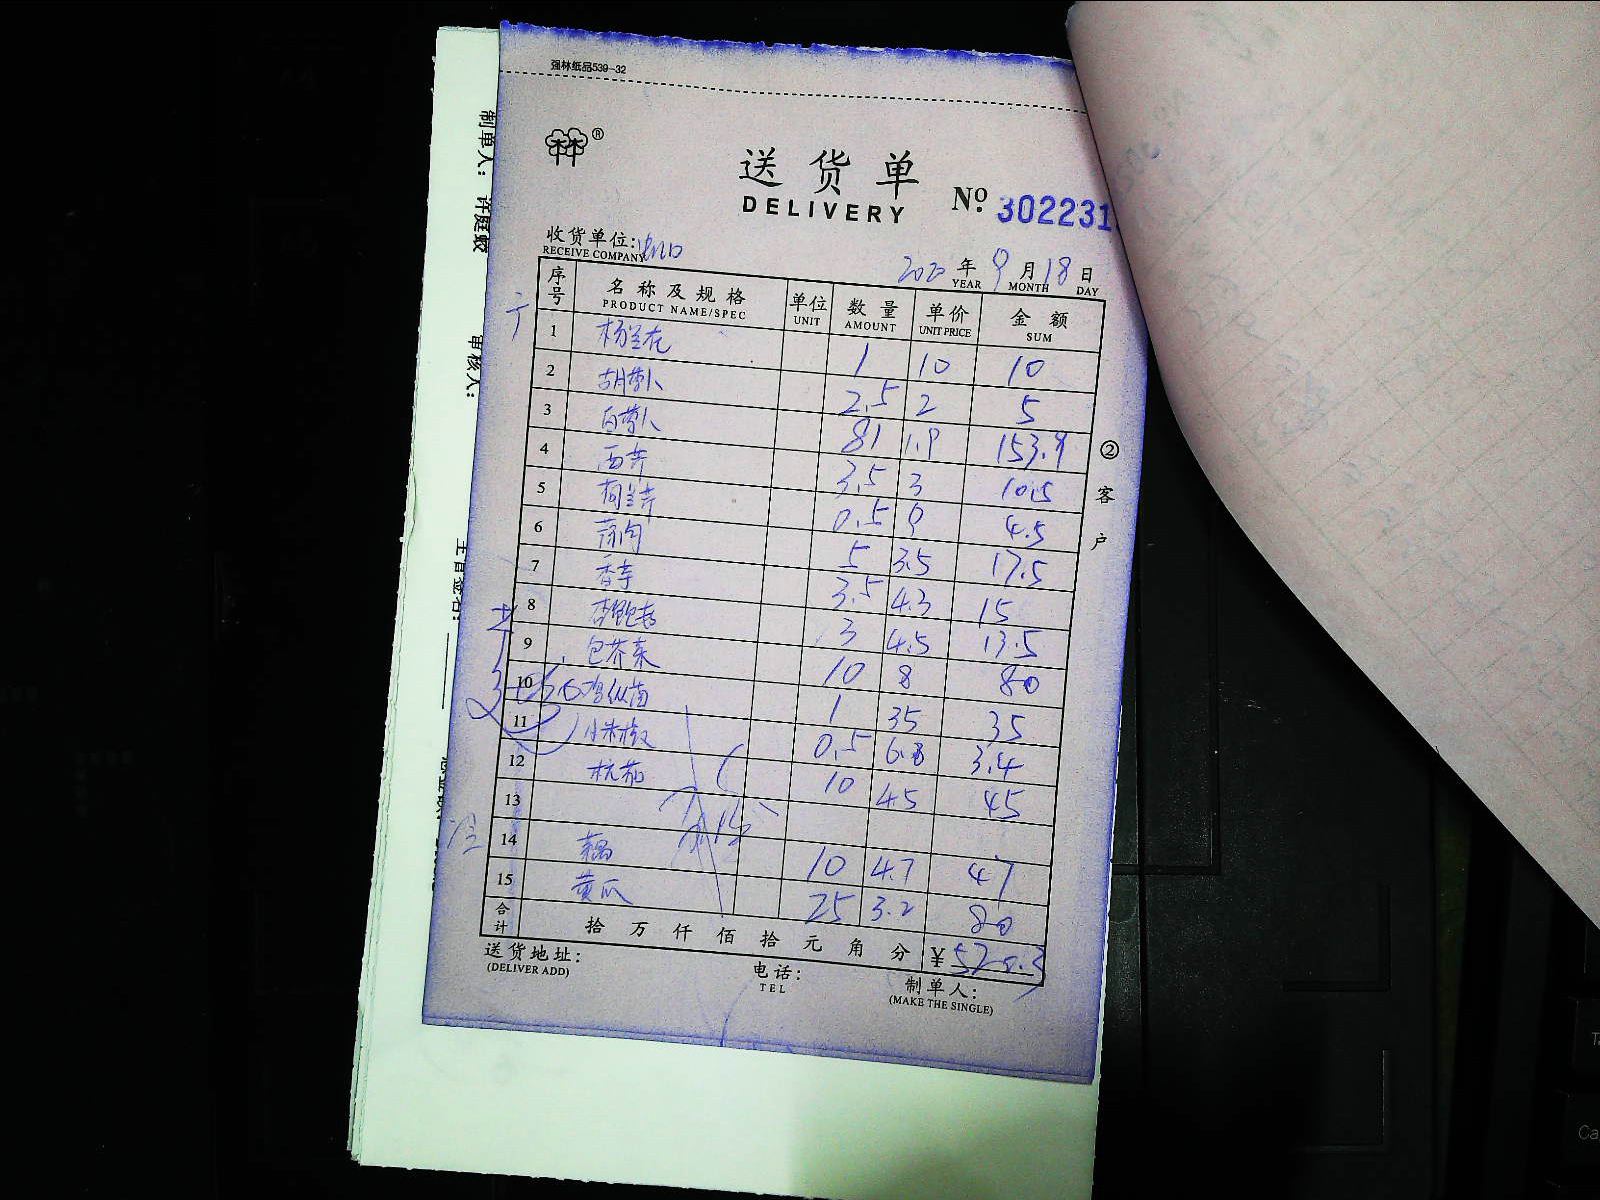 强林纸品539-32
®
送货单
DELIVERY
No. 302231
收货单位:
RECEIVE COMPANY
2020 年 9 月 18 日
YEAR MONTH DAY
序号 名称及规格 单位 数量 单价 金额
PRODUCT NAME/SPEC UNIT AMOUNT UNIT PRICE SUM
1 杨兰花 1 10 10
2 胡萝卜 2.5 2 5
3 白萝卜 81 1.9 153.9
4 西芹 3.5 3 10.5
5 荷兰芹 0.5 9 4.5
6 蒜肉 5 3.5 17.5
7 香芋 3.5 4.3 15
8 杏鲍菇 3 4.5 13.5
9 包芥菜 10 8 80
10 鸡枞菌 1 35 35
11 小米椒 0.5 6.8 3.4
12 杭茄 10 4.5 45
13
14 藕 10 4.7 47
15 黄瓜 25 3.2 80
合计 拾 万 仟 佰 拾 元 角 分 ¥520.3
送货地址:
(DELIVER ADD)
电话:
TEL
制单人:
(MAKE THE SINGLE)
②客户
制单人:
审核人: